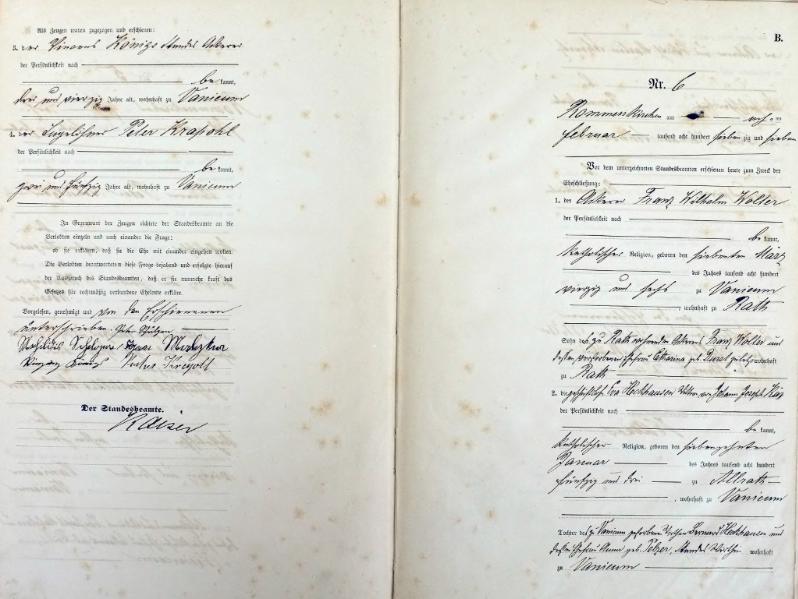 Als Zeugen waren zugezogen und erschienen:
3. der Vincens Königs Standes Ackerer
der Persönlichkeit nach
be kannt,
drei und vierzig Jahre alt, wohnhaft zu Vanicum
4. der Peter Krapohl
der Persönlichkeit nach
be kannt,
zwei und fünfzig Jahre alt, wohnhaft zu Vanicum
In Gegenwart der Zeugen richtete der Standesbeamte an die
Verlobten einzeln und nach einander die Frage:
ob sie erklären, daß sie die Ehe mit einander eingehen wollen.
Die Verlobten beantworteten diese Frage bejahend und erfolgte hierauf
der Ausspruch des Standesbeamten, daß er sie nunmehr kraft des
Gesetzes für rechtmäßig verbundene Eheleute erkläre.
Vorgelesen, genehmigt und von den Erschienenen
unterschrieben.
Vincenz Königs
Der Standesbeamte.
Kaiser
B.
Nr. 6
Rommerskirchen am
Februar tausend acht hundert sieben zig und sieben
Vor dem unterzeichneten Standesbeamten erschienen heute zum Zweck der
Eheschließung:
1. der Ackerer Franz Wilhelm Wolter
der Persönlichkeit nach
be kannt,
katholischer Religion, geboren den siebenten März
des Jahres tausend acht hundert
vierzig und sechs zu Vanicum
, wohnhaft zu Rath
Sohn des zu Rath wohnenden Ackerers Franz Wolter und
dessen verstorbenen Ehefrau Catharina geb. wohnhaft
zu Rath
2. die geschäftslose Eva Heckhausen Wittwe von Johann Joseph
der Persönlichkeit nach
be kannt,
katholischer Religion, geboren den siebenzehnten
Januar des Jahres tausend acht hundert
fünfzig und drei zu Allrath
, wohnhaft zu Vanicum
Tochter des zu Vanicum Bernard Heckhausen und
dessen Ehefrau Anna geb. Pelzer, Standes wohnhaft
zu Vanicum